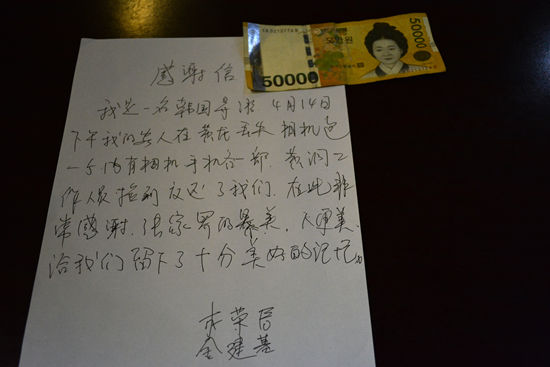 50000
50000
오만원
感謝信
我是一名韩国导游 4月14日
下午我的客人在黄龙丢失相机包
一个内有相机手机各一部. 黄洞工
作人员捡到交还了我们. 在此非
常感謝. 张家界的景美. 人更美.
给我们留下了十分美好的记忆。
李荣
金建基